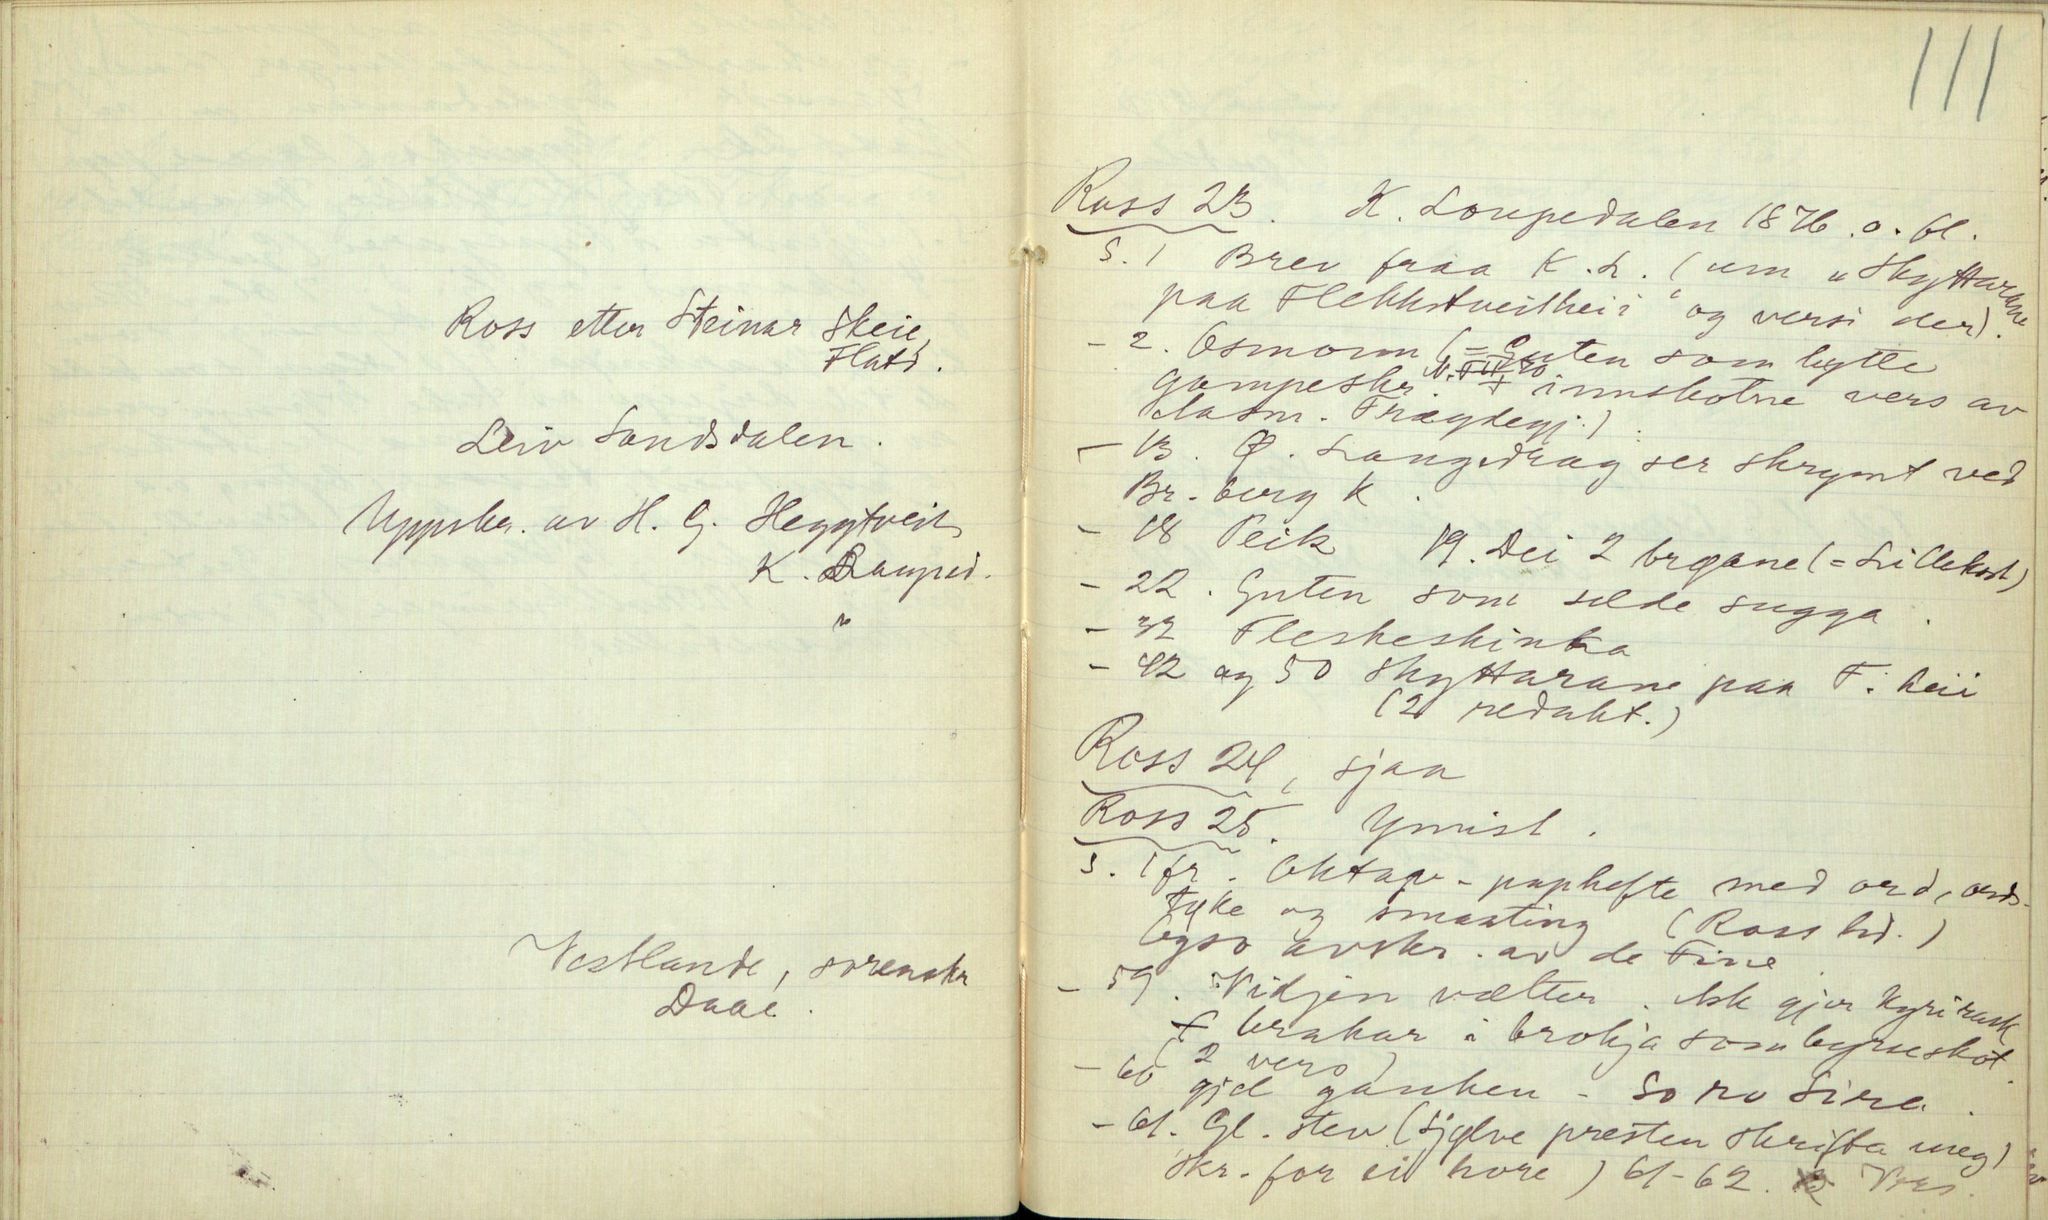 Ross etter Steinar Skeie,
Flatd.
Leiv Sandsdalen.
Uppskr. av H. G. Heggtveit
K. Loupend.
"
Vestlande, sorenskr
Daae.
111
Ross 23. K. Loupedalen 1876 o. fl.
S. 1 Brev fraa K. L. (um "Skyttarane
paa Flekkstveitheii" og versi der).
- 2. Osmonn (= Guten som bytte
gampeskr innskotne vers av
Aasm. Frægdegj.)
- 13. Ø. Langedrag ser skrymt ved
Br.berg k.
- 18 Peik 19. Dei 2 brøane (= Lillekort)
- 22. Guten som selde sugga.
- 32 Fleskeskinka
- 42 og 50 Skyttarane paa F. heii
(2 redakt.)
Ross 24, sjaa
Ross 25. Ymist.
S. 1 fr. Oktav-paphefte med ord, ords-
tøke og smaating (Ross hd.)
Ogso avskr. av de Fine
- 59. Vidjen vætter. Ask gjer kyri rask
brakar i brokja som byrseskot.
(2 vers)
- 60 gjel gauken - so ro Sire.
- 61. Gl. stev (Sjølve presten skrifta meg)
skr. for ei hore) 61-62. Vers.